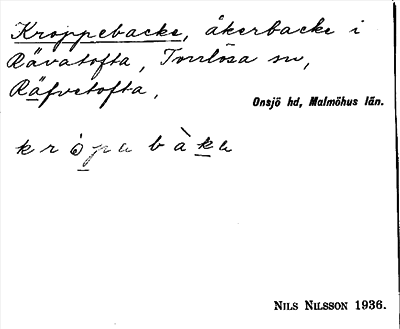 Kroppebacke, åkerbacke i
Rävatofta, Torrlösa sn,
Räfvetofta,
Onsjö hd, Malmöhus län.
krȯpabàka
NILS NILSSON 1936.